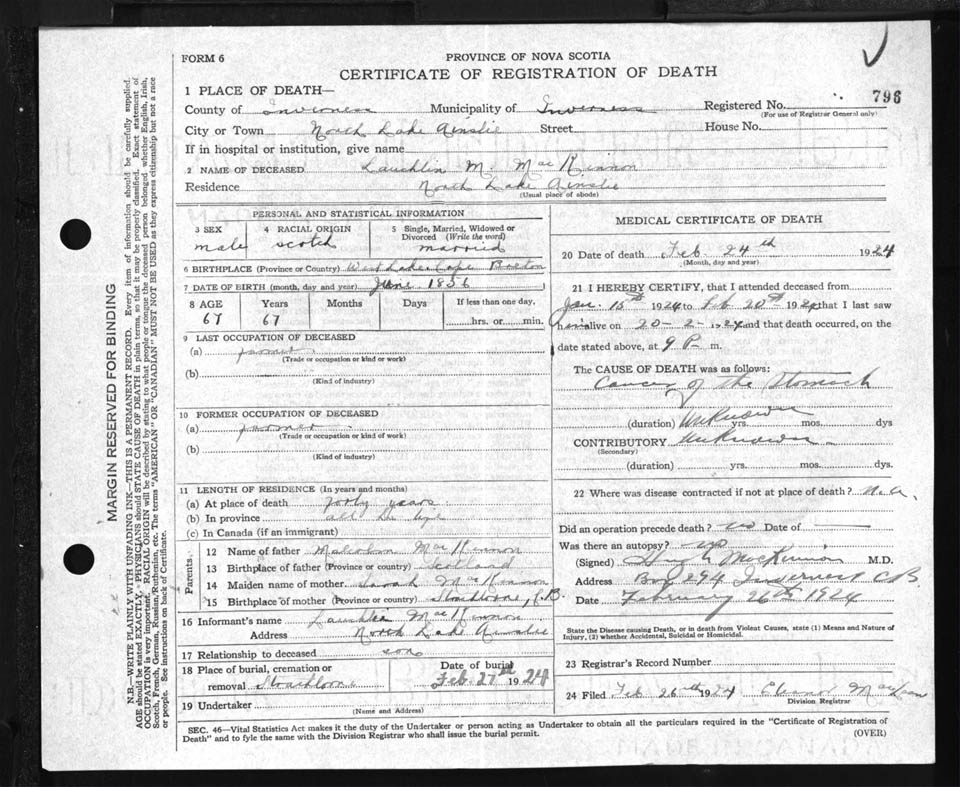 FORM 6
PROVINCE OF NOVA SCOTIA
CERTIFICATE OF REGISTRATION OF DEATH
1 PLACE OF DEATH—
County of Inverness Municipality of Inverness Registered No. 796
(For use of Registrar General only)
City or Town North Lake Ainslie Street House No.
If in hospital or institution, give name
2 NAME OF DECEASED Lauchlin M. MacKinnon
Residence North Lake Ainslie
(Usual place of abode)
PERSONAL AND STATISTICAL INFORMATION
3 SEX male
4 RACIAL ORIGIN scotch
5 Single, Married, Widowed or Divorced (Write the word) married
6 BIRTHPLACE (Province or Country) West Lake Cape Breton
7 DATE OF BIRTH (month, day and year) June 1856
8 AGE Years Months Days If less than one day,
67 67 hrs. or min.
9 LAST OCCUPATION OF DECEASED
(a) farmer
(Trade or occupation or kind or work)
(b)
(Kind of industry)
10 FORMER OCCUPATION OF DECEASED
(a) farmer
(Trade or occupation or kind of work)
(b)
(Kind of industry)
11 LENGTH OF RESIDENCE (In years and months)
(a) At place of death forty years
(b) In province all his life
(c) In Canada (if an immigrant)
Parents
12 Name of father Malcolm MacKinnon
13 Birthplace of father (Province or country) Scotland
14 Maiden name of mother Sarah MacKinnon
15 Birthplace of mother (Province or country) Strathlorne, C.B.
16 Informant's name Lauchlin MacKinnon
Address North Lake Ainslie
17 Relationship to deceased son
18 Place of burial, cremation or removal Strathlorne
Date of burial Feb. 27th 1924
19 Undertaker
(Name and Address)
MEDICAL CERTIFICATE OF DEATH
20 Date of death Feb. 24th 1924
(Month, day and year)
21 I HEREBY CERTIFY, that I attended deceased from
Jan. 15th 1924 to Feb 20th 1924 that I last saw
him alive on 20-2-1924 and that death occurred, on the
date stated above, at 9 P. m.
The CAUSE OF DEATH was as follows:
Cancer of the Stomach
(duration) Unknown yrs. mos. dys
CONTRIBUTORY Unknown
(Secondary)
(duration) yrs. mos. dys.
22 Where was disease contracted if not at place of death? n.a.
Did an operation precede death? no Date of
Was there an autopsy? no
(Signed) MacKinnon M.D.
Address Box 294 Inverness C.B.
Date February 26th 1924
State the Disease causing Death, or in death from Violent Causes, state (1) Means and Nature of
Injury, (2) whether Accidental, Suicidal or Homicidal.
23 Registrar's Record Number
24 Filed Feb 26th 1924
Division Registrar
SEC. 46—Vital Statistics Act makes it the duty of the Undertaker or person acting as Undertaker to obtain all the particulars required in the "Certificate of Registration of
Death" and to fyle the same with the Division Registrar who shall issue the burial permit.
(OVER)
MARGIN RESERVED FOR BINDING
N.B.—WRITE PLAINLY WITH UNFADING INK—THIS IS A PERMANENT RECORD. Every item of information should be carefully supplied.
AGE should be stated EXACTLY. PHYSICIANS should STATE CAUSE OF DEATH in plain terms, so that it may be properly classified. Exact statement of
OCCUPATION is very important. RACIAL ORIGIN will be described by stating to what people or tongue the deceased person belonged whether English, Irish,
Scotch, French, German, Russian, Ruthenian, etc. The terms "AMERICAN" OR "CANADIAN" MUST NOT BE USED as they express citizenship but not a race
or people. See instructions on back of Certificate.